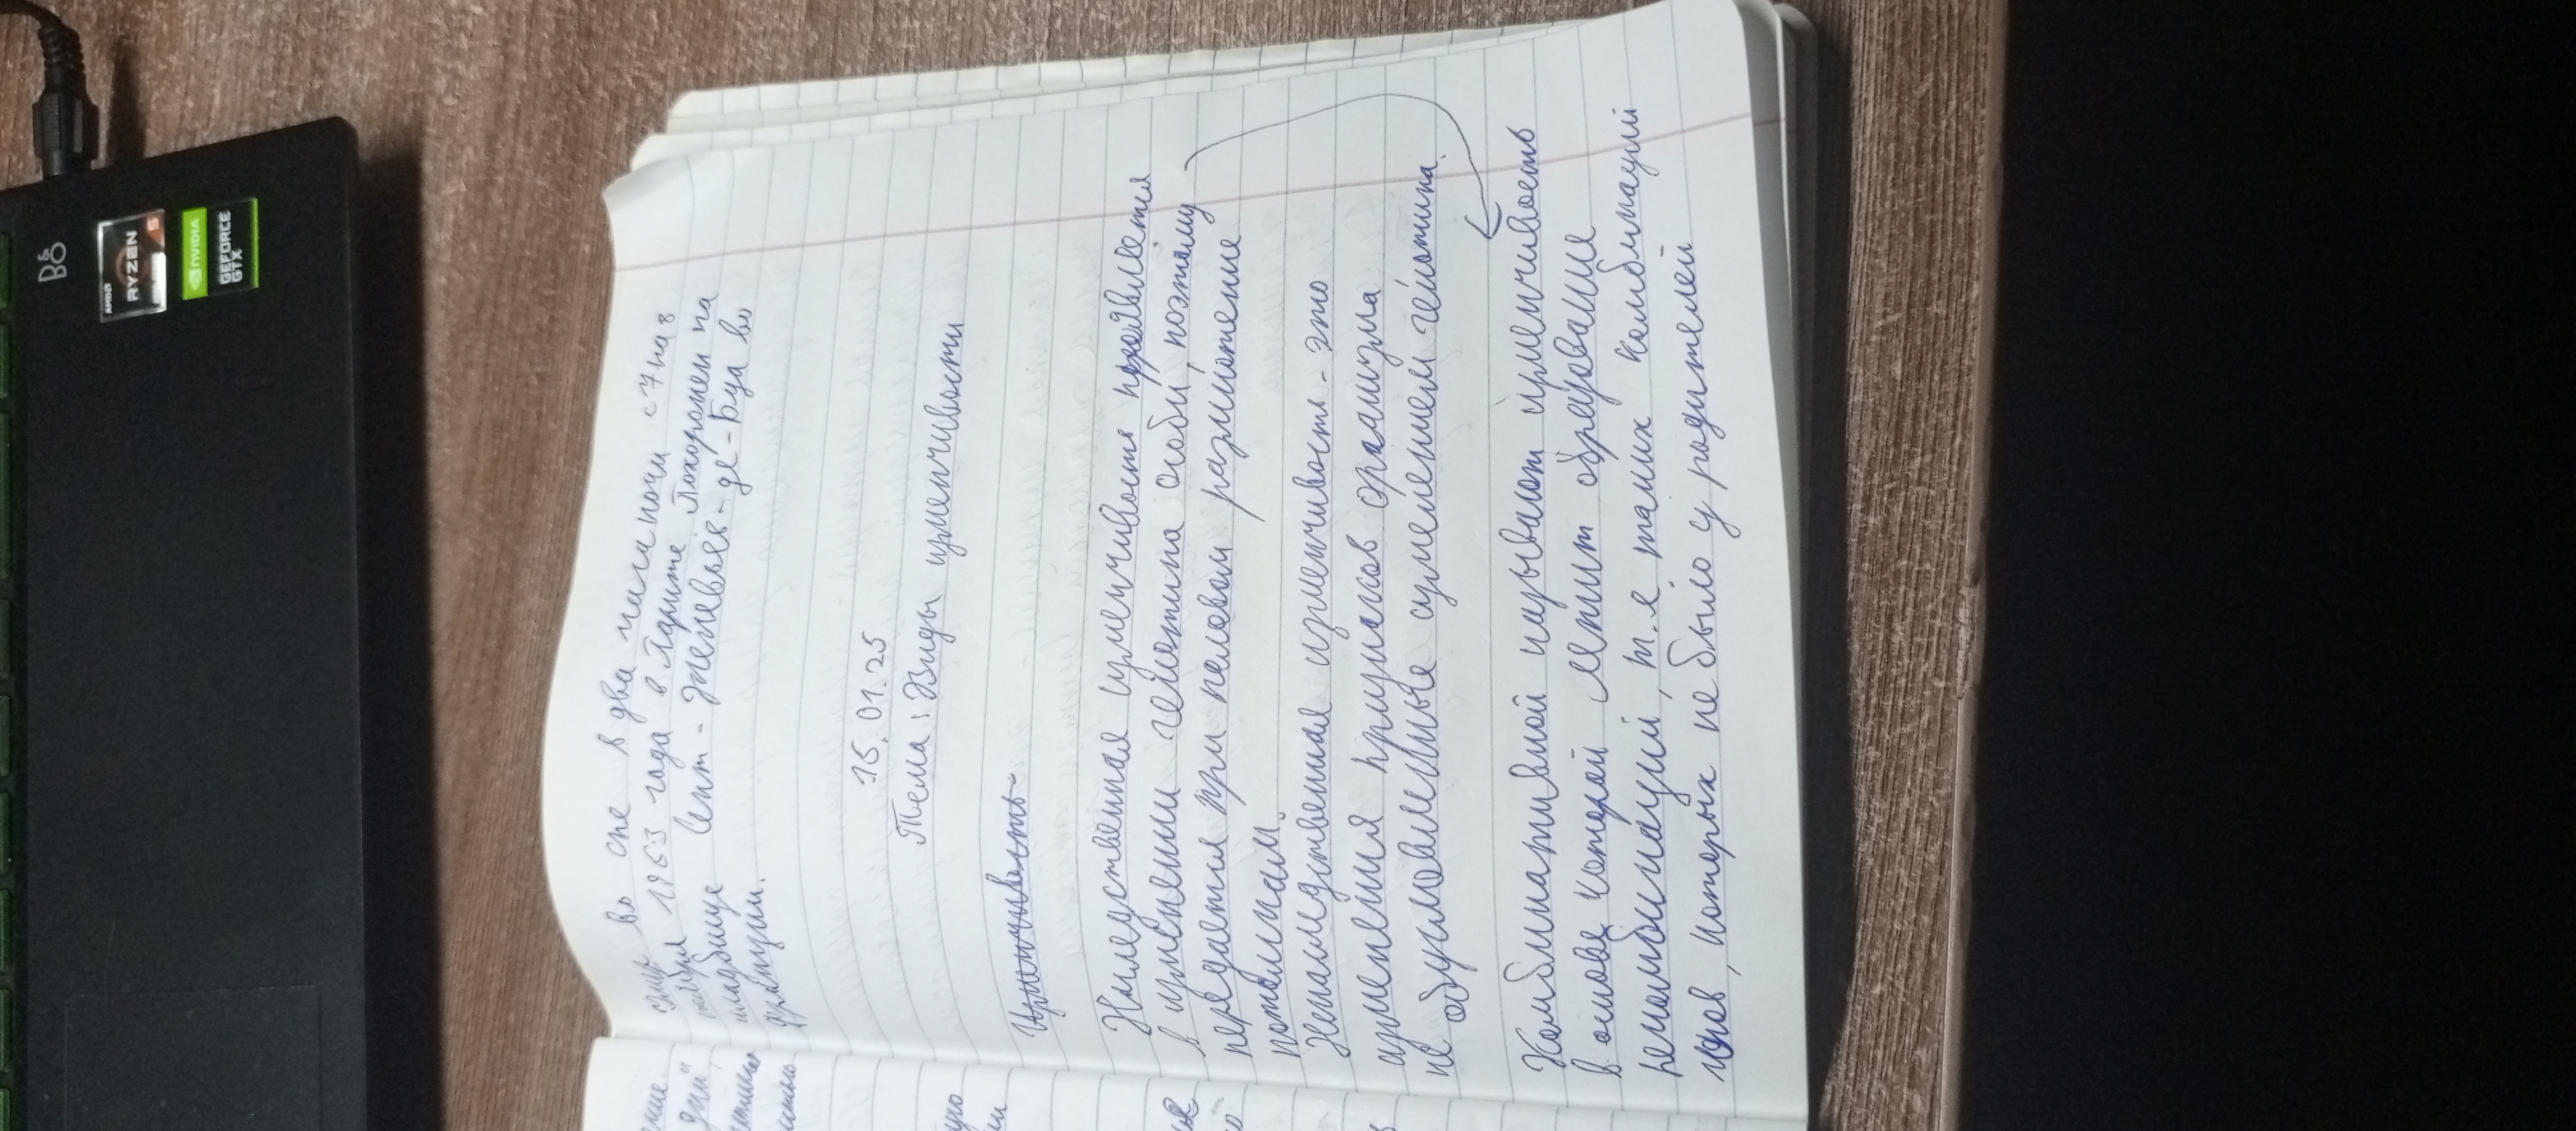 во сне в два часа ночи с 7 на 8
1963 года в Париже. Похоронен на
кладбище Сент - Женевьев - де - Буа во
Франции.
15.01.25
Тема: Виды изменчивости
Изменчивость -
Наследственная изменчивость проявляется
в изменении генотипа особи, поэтому
передается при половом размножение
потомкам.
Ненаследственная изменчивость - это
изменения признаков организма
не обусловленные изменением генотипа.
Комбинативной называют изменчивость
в основе которой лежит образование
рекомбинаций, т.е таких комбинаций
генов, которых не было у родителей
AMD
RYZEN
5
NVIDIA
GEFORCE
GTX
B&O